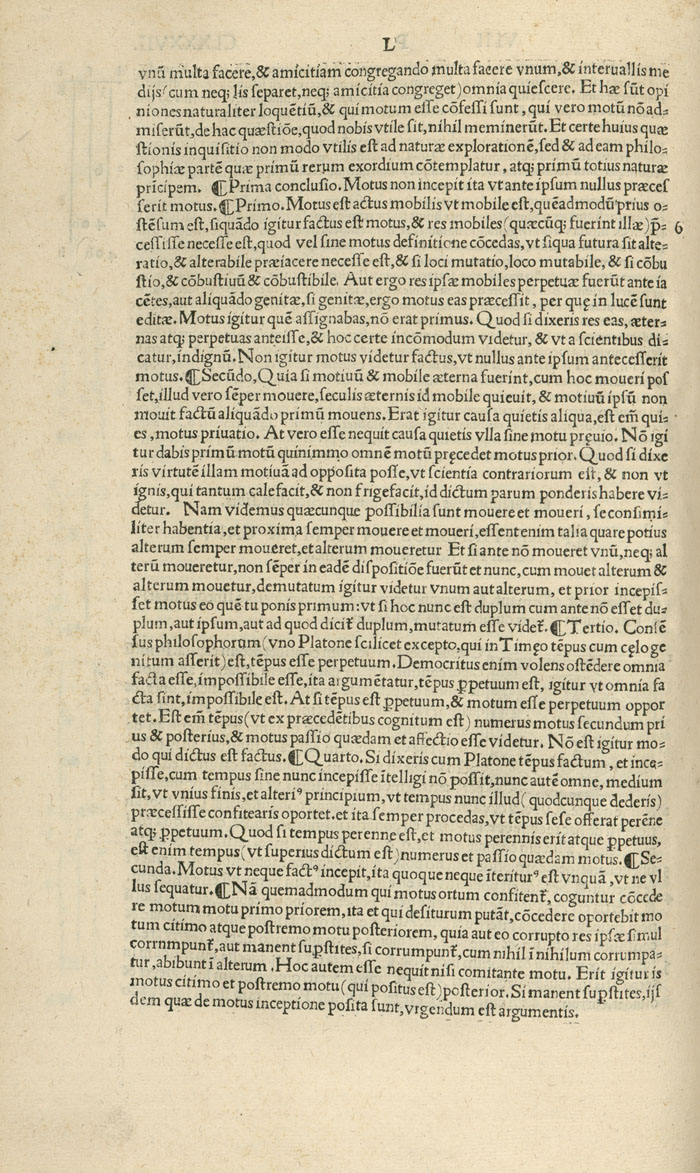 L
vnū multa facere,& amicitiam congregando multa facere vnum,& interuallis me
dijs(cum neq; lis separet,neq; amicitia congreget)omnia quiescere. Et hæ sūt opi
niones naturaliter loquētiū,& qui motum esse cōfessi sunt, qui vero motū nō ad=
miserūt,de hac quæstiōe,quod nobis vtile sit,nihil meminerūt.Et certe huius quæ
stionis inquisitio non modo vtilis est ad naturæ explorationē,sed & ad eam philo=
sophiæ partē quæ primū rerum exordium cōtemplatur, atq; primū totius naturæ
pricipem. ¶Prima conclusio. Motus non incepit ita vt ante ipsum nullus præces
serit motus.¶Primo.Motus est actus mobilis vt mobile est,quēadmodū prius o=
stēsum est,siquādo igitur factus est motus,& res mobiles(quæcūq; fuerint illæ)p̄= 6
cessisse necesse est,quod vel sine motus definitione cōcedas,vt siqua futura sit alte=
ratio,& alterabile præiacere necesse est,& si loci mutatio,loco mutabile, & si cōbu
stio,& cōbustiuū & cōbustibile. Aut ergo res ipsæ mobiles perpetuæ fuerūt ante ia
cētes,aut aliquādo genitæ,si genitæ,ergo motus eas præcessit, per quę in lucē sunt
editæ. Motus igitur quē assignabas,nō erat primus. Quod si dixeris res eas, æter=
nas atq; perpetuas anteisse,& hoc certe incōmodum videtur, & vt a scientibus di=
catur,indignū. Non igitur motus videtur factus,vt nullus ante ipsum antecesserit
motus.¶Secūdo,Quia si motiuū & mobile æterna fuerint,cum hoc moueri pos
set,illud vero sēper mouere,seculis æternis id mobile quieuit, & motiuū ipsū non
mouit factū aliquādo primū mouens. Erat igitur causa quietis aliqua,est em̄ qui=
es ,motus priuatio. At vero esse nequit causa quietis vlla sine motu pręuio. Nō igi
tur dabis primū motū quinimmo omnē motū pręcedet motus prior. Quod si dixe
ris virtutē illam motiuā ad opposita posse,vt scientia contrariorum est, & non vt
ignis,qui tantum calefacit,& non frigefacit,id dictum parum ponderis habere vi=
detur. Nam videmus quæcunque possibilia sunt mouere et moueri, se consimi=
liter habentia,et proxima semper mouere et moueri,essent enim talia quare potius
alterum semper moueret,et alterum moueretur Et si ante nō moueret vnū,neq; al
terū moueretur,non sēper in eadē dispositiōe fuerūt et nunc,cum mouet alterum &
alterum mouetur,demutatum igitur videtur vnum aut alterum, et prior incepis=
set motus eo quē tu ponis primum:vt si hoc nunc est duplum cum ante nō esset du=
plum,aut ipsum,aut ad quod dicit̄ duplum,mutatum esse videt̄. ¶Tertio. Consē
sus philosophorum(vno Platone scilicet excepto,qui in Timęo tēpus cum cęlo ge
nitum asserit)est,tēpus esse perpetuum.Democritus enim volens ostēdere omnia
facta esse,impossibile esse,ita argumētatur,tēpus ꝑpetuum est, igitur vt omnia fa
cta sint,impossibile est. At si tēpus est ꝑpetuum,& motum esse perpetuum oppor
tet. Est em̄ tēpus(vt ex præcedētibus cognitum est) numerus motus secundum pri
us & posterius,& motus passio quædam et affectio esse videtur. Nō est igitur mo=
do qui dictus est factus.¶Quarto.Si dixeris cum Platone tēpus factum, et ince=
pisse,cum tempus sine nunc incepisse ītelligi nō possit,nunc autē omne, medium
sit,vt vnius finis,et alteriꝰ principium,vt tempus nunc illud(quodcunque dederis)
præcessisse confitearis oportet.et ita semper procedas,vt tēpus sese offerat perēne
atq; ꝑpetuum. Quod si tempus perenne est,et motus perennis erit atque ꝑpetuus,
est enim tempus(vt superius dictum est)numerus et passio quædam motus.¶Se=
cunda.Motus vt neque factꝰ incepit,ita quoque neque īteriturꝰ est vnquā,vt ne vl
lus sequatur.¶Nā quemadmodum qui motus ortum confitent̄, coguntur cōcede
re motum motu primo priorem,ita et qui desiturum putāt,cōcedere oportebit mo
tum citimo atque postremo motu posteriorem, quia aut eo corrupto res ipsæ simul
corrnmpunt̄,aut manent suꝑstites,si corrumpunt̄,cum nihil ī nihilum corrumpa=
tur,abibunt ī alterum .Hoc autem esse nequit nisi comitante motu. Erit igitur is
motus citimo et postremo motu(qui positus est)posterior.Si manent suꝑstites,ijs
dem quæ de motus inceptione posita sunt,vrgendum est argumentis.